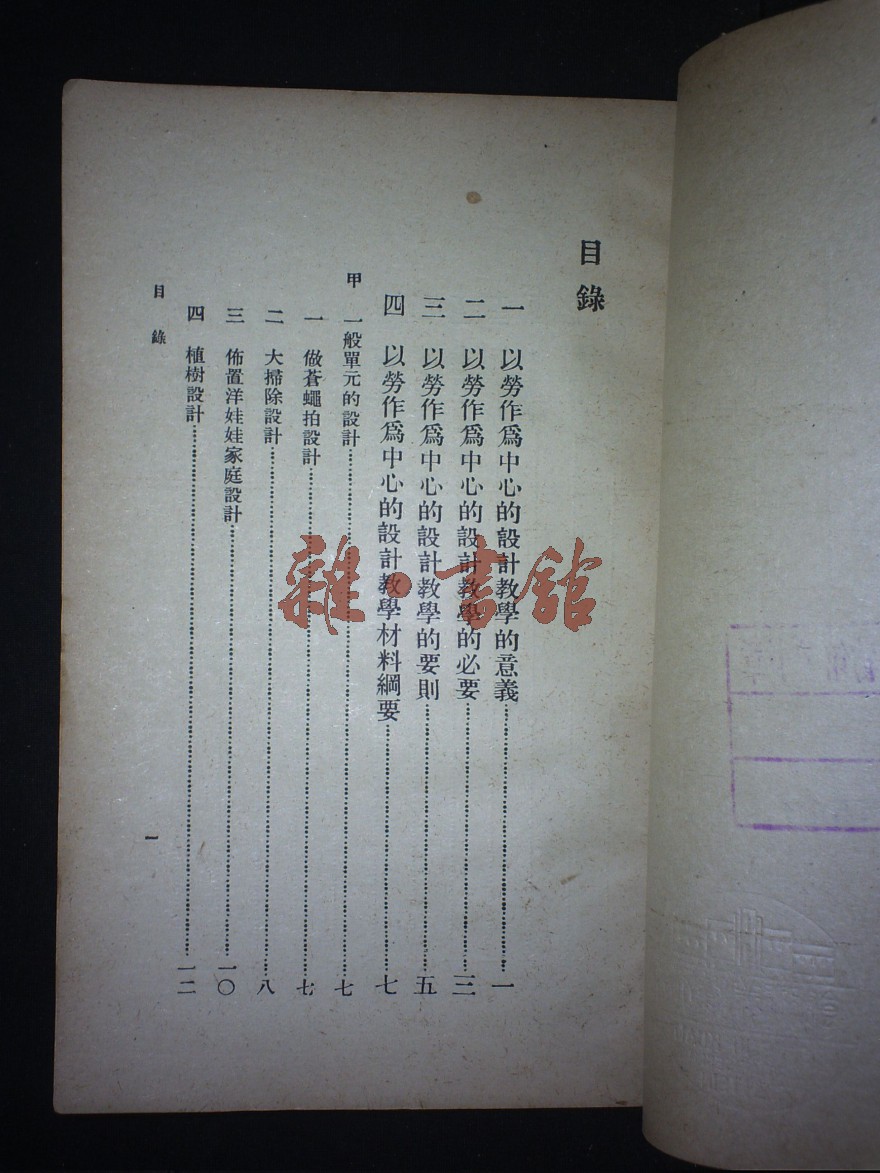 目錄
一 以勞作爲中心的設計教學的意義……一
二 以勞作爲中心的設計教學的必要……三
三 以勞作爲中心的設計教學的要則……五
四 以勞作爲中心的設計教學材料綱要……七
甲 一般單元的設計……七
一 做蒼蠅拍設計……七
二 大掃除設計……八
三 佈置洋娃娃家庭設計……一〇
四 植樹設計……一二
目錄
一
雜·書館